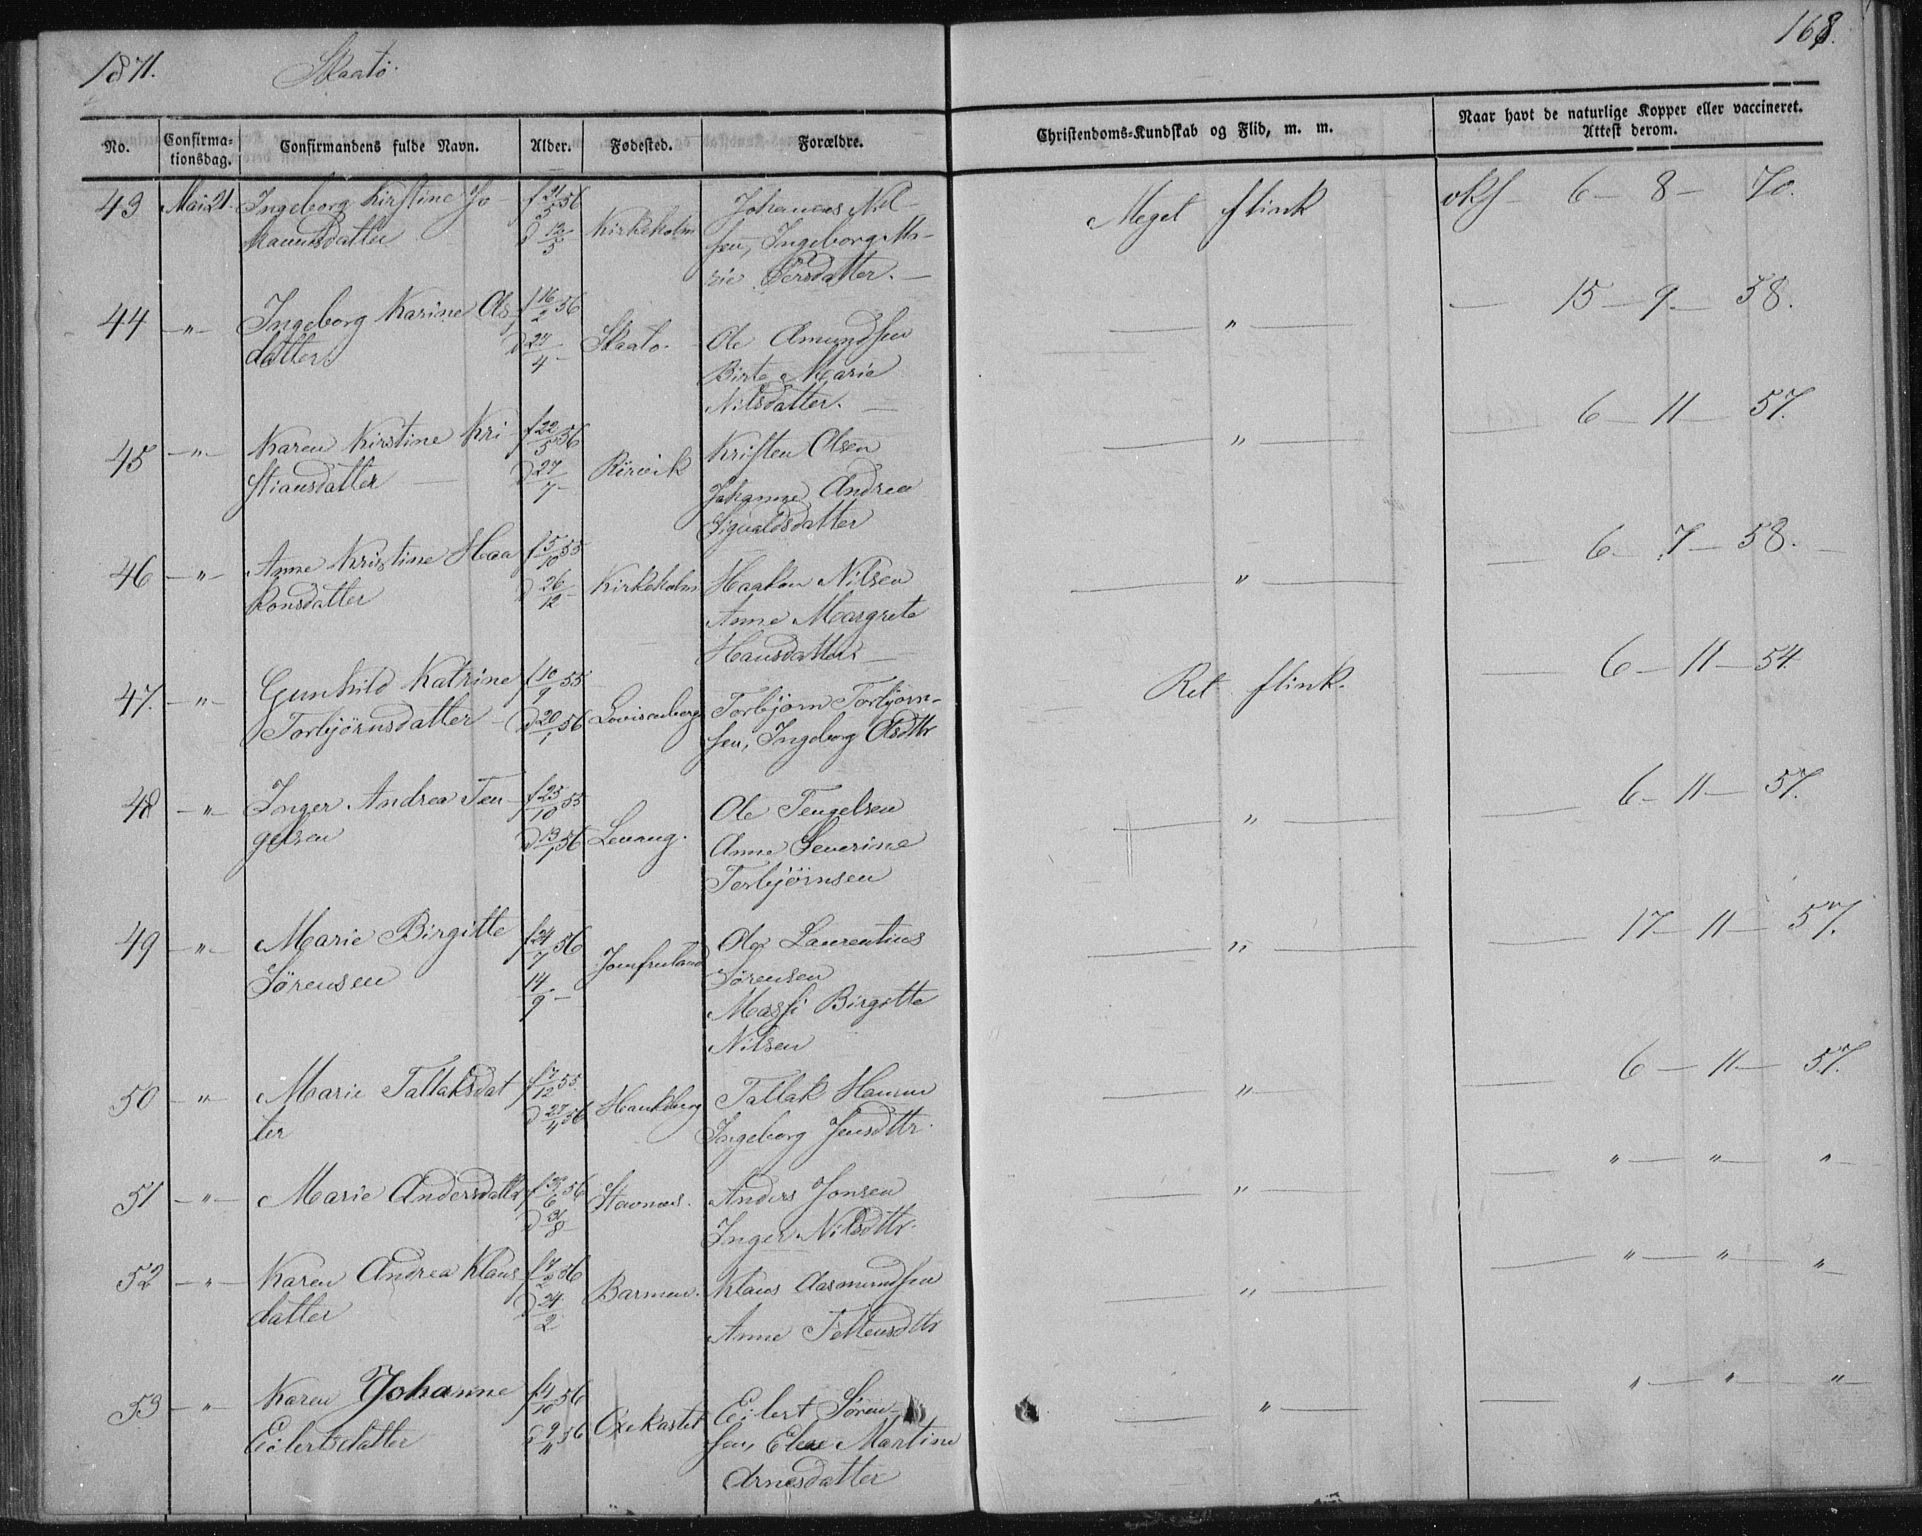 1871. Skaatö. 168.
No. Confirma-tionsdag. Confirmandens fulde Navn. Alder. Fødested. Forældre. Christendoms-Kundskab og Flid, m. m. Naar havt de naturlige Kopper eller vaccineret. Attest derom.
43 Mai 21. Ingeborg Kirstine Jo- f 21/5 56 Kirkeholm Johannes Nil- Meget flink vkf 6 - 8 - 70.
hannesdatter D 12/5 sen, Ingeborg Ma-
rie Persdatter. —
44 -"- Ingeborg Karine Ols- f 16/2 56 Skaatö. Ole Amundsen — " — — 15 - 9 - 58.
datter D 27/4 - Birte Marie
Nilsdatter. —
45 -"- Karen Kirstine Kri- f 22/5 56 Rörvik Kristen Olsen — " — — 6 - 11 - 57.
stiansdatter — D 27/7 - Johanne Andrea
Sigvaldsdatter
46 -"- Anne Kristine Haa- f 5/10 55 Kirkeholm Haakon Nilsen — " — — 6 - 7 - 58. —
konsdatter D 26/12 - Anne Margrete
Hansdatter —
47. -"- Gunhild Katrine f 10/9 55 Lovisenberg Torbjörn Torbjörn- Ret flink. — 6 - 11 - 54
Torbjörnsdatter - D 20/1 56 sen, Ingeborg Olsdttr
48 -"- Inger Andrea Ten- f 25/10 55 Levang. Ole Tengelsen — " — — 6 - 11 - 57.
gelsen D 13/1 56 Anne Severine
Torbjörnsen
49 -"- Marie Birgitte f 24/7 56 Jomfruland Ole Laurentius — " — — 17 - 11 - 57.
Sörensen 14/9 - Sörensen
Massi Birgitte
Nilsen
50 -"- Marie Tallaksdat f 7/12 55 Haukeberg Tallak — " — — 6 - 11 - 57.
ter D 27/4 56 Ingeborg Jensdttr.
51 -"- Marie Andersdatter f 30/6 56 Stavnæs. Anders Jonsen — " — — " - " - "
D 31/8 Inger Nilsdttr.
52 -"- Karen Andrea Klaus- f 7/2 56 Barmen. Klaus Aasmundsen — " — — " - " - "
datter D 24/2 Anne Tellensdttr
53 -"- Karen Johanne f 4/10 56 Oxekastet Eilert Sören- — " — — " - " - "
Eilertsdatter D 9/11 56 sen, Elen Martine
Arnesdatter